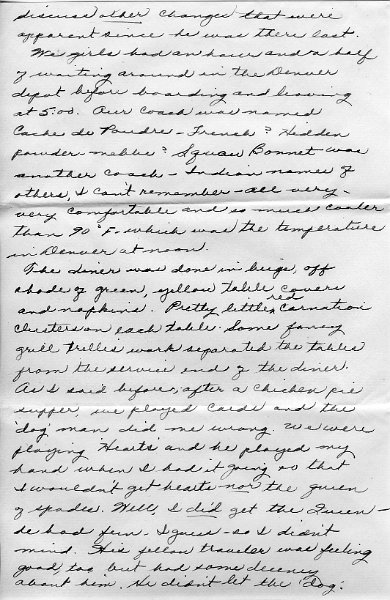 discuss other changes that were
apparent since he was there last.
We girls had an hour and a half
of waiting around in the Denver
depot before boarding and leaving
at 5:00. Our coach was named
Cache de Poudre - French? Hidden
powder - mebbe? Squaw Bonnet was
another coach - Indian names of
others, I can't remember - all very -
very comfortable and so much cooler
than 90°F - which was the temperature
in Denver at noon.
The diner was done in beige, off
shade of green, yellow table covers
and napkins. Pretty little red Carnation
clusters on each table. Some fancy
grill trellis work separated the tables
from the service end of the diner.
As I said before, after a chicken pie
supper, we played cards and the
'dog' man did me wrong. We were
playing 'Hearts' and he played my
hand when I had it going so that
I wouldn't get hearts nor the queen
of spades. Well, I did get the Queen -
he had fun - I guess - so I didn't
mind. His fellow traveler was feeling
good, too but had some decency
about him. He didn't let the 'dog'